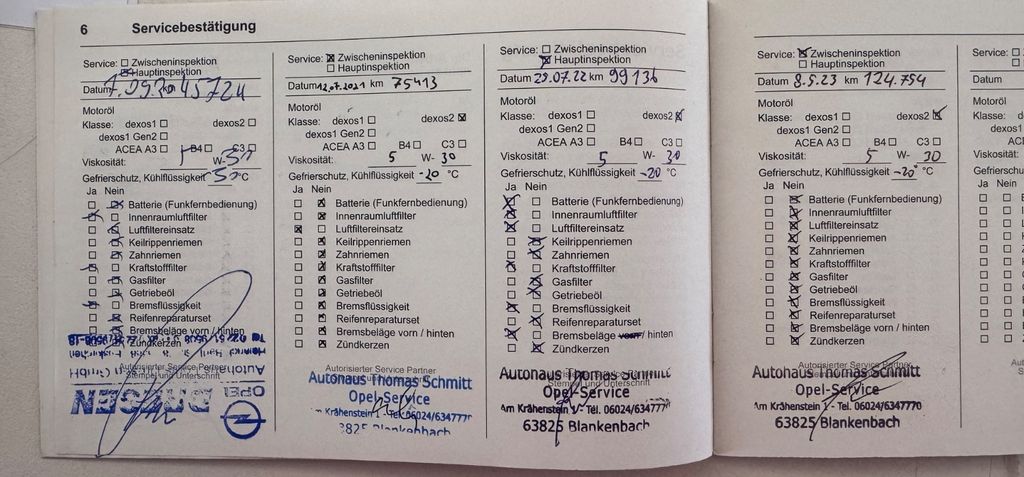 6 Servicebestätigung
Service: Zwischeninspektion
Hauptinspektion
Datum km 45724
Motoröl
Klasse: dexos1 dexos2
dexos1 Gen2
ACEA A3 B4 C3
Viskosität: W-
Gefrierschutz, Kühlflüssigkeit °C
Ja Nein
Batterie (Funkfernbedienung)
Innenraumluftfilter
Luftfiltereinsatz
Keilrippenriemen
Zahnriemen
Kraftstofffilter
Gasfilter
Getriebeöl
Bremsflüssigkeit
Reifenreparaturset
Bremsbeläge vorn / hinten
Zündkerzen
Autorisierter Service Partner
Stempel und Unterschrift
OPEL
Service: Zwischeninspektion
Hauptinspektion
Datum 12.07.2021 km 75413
Motoröl
Klasse: dexos1 dexos2
dexos1 Gen2
ACEA A3 B4 C3
Viskosität: 5 W- 30
Gefrierschutz, Kühlflüssigkeit -20 °C
Ja Nein
Batterie (Funkfernbedienung)
Innenraumluftfilter
Luftfiltereinsatz
Keilrippenriemen
Zahnriemen
Kraftstofffilter
Gasfilter
Getriebeöl
Bremsflüssigkeit
Reifenreparaturset
Bremsbeläge vorn / hinten
Zündkerzen
Autorisierter Service Partner
Autohaus Thomas Schmitt
Opel-Service
Am Krähenstein 1 - Tel. 06024/6347770
63825 Blankenbach
Service: Zwischeninspektion
Hauptinspektion
Datum 29.07.22 km 99136
Motoröl
Klasse: dexos1 dexos2
dexos1 Gen2
ACEA A3 B4 C3
Viskosität: 5 W- 30
Gefrierschutz, Kühlflüssigkeit -20 °C
Ja Nein
Batterie (Funkfernbedienung)
Innenraumluftfilter
Luftfiltereinsatz
Keilrippenriemen
Zahnriemen
Kraftstofffilter
Gasfilter
Getriebeöl
Bremsflüssigkeit
Reifenreparaturset
Bremsbeläge vorn / hinten
Zündkerzen
Autohaus Thomas Schmitt
Stempel und Unterschrift
Opel-Service
Am Krähenstein 1 - Tel. 06024/6347770
63825 Blankenbach
Service: Zwischeninspektion
Hauptinspektion
Datum 8.5.23 km 124.754
Motoröl
Klasse: dexos1 dexos2
dexos1 Gen2
ACEA A3 B4 C3
Viskosität: 5 W- 30
Gefrierschutz, Kühlflüssigkeit -20 °C
Ja Nein
Batterie (Funkfernbedienung)
Innenraumluftfilter
Luftfiltereinsatz
Keilrippenriemen
Zahnriemen
Kraftstofffilter
Gasfilter
Getriebeöl
Bremsflüssigkeit
Reifenreparaturset
Bremsbeläge vorn / hinten
Zündkerzen
Autorisierter Service Partner
Autohaus Thomas Schmitt
Opel-Service
Am Krähenstein 1 - Tel. 06024/6347770
63825 Blankenbach
Service:
Datum
Motoröl
Klasse:
Viskosität:
Ja Nein